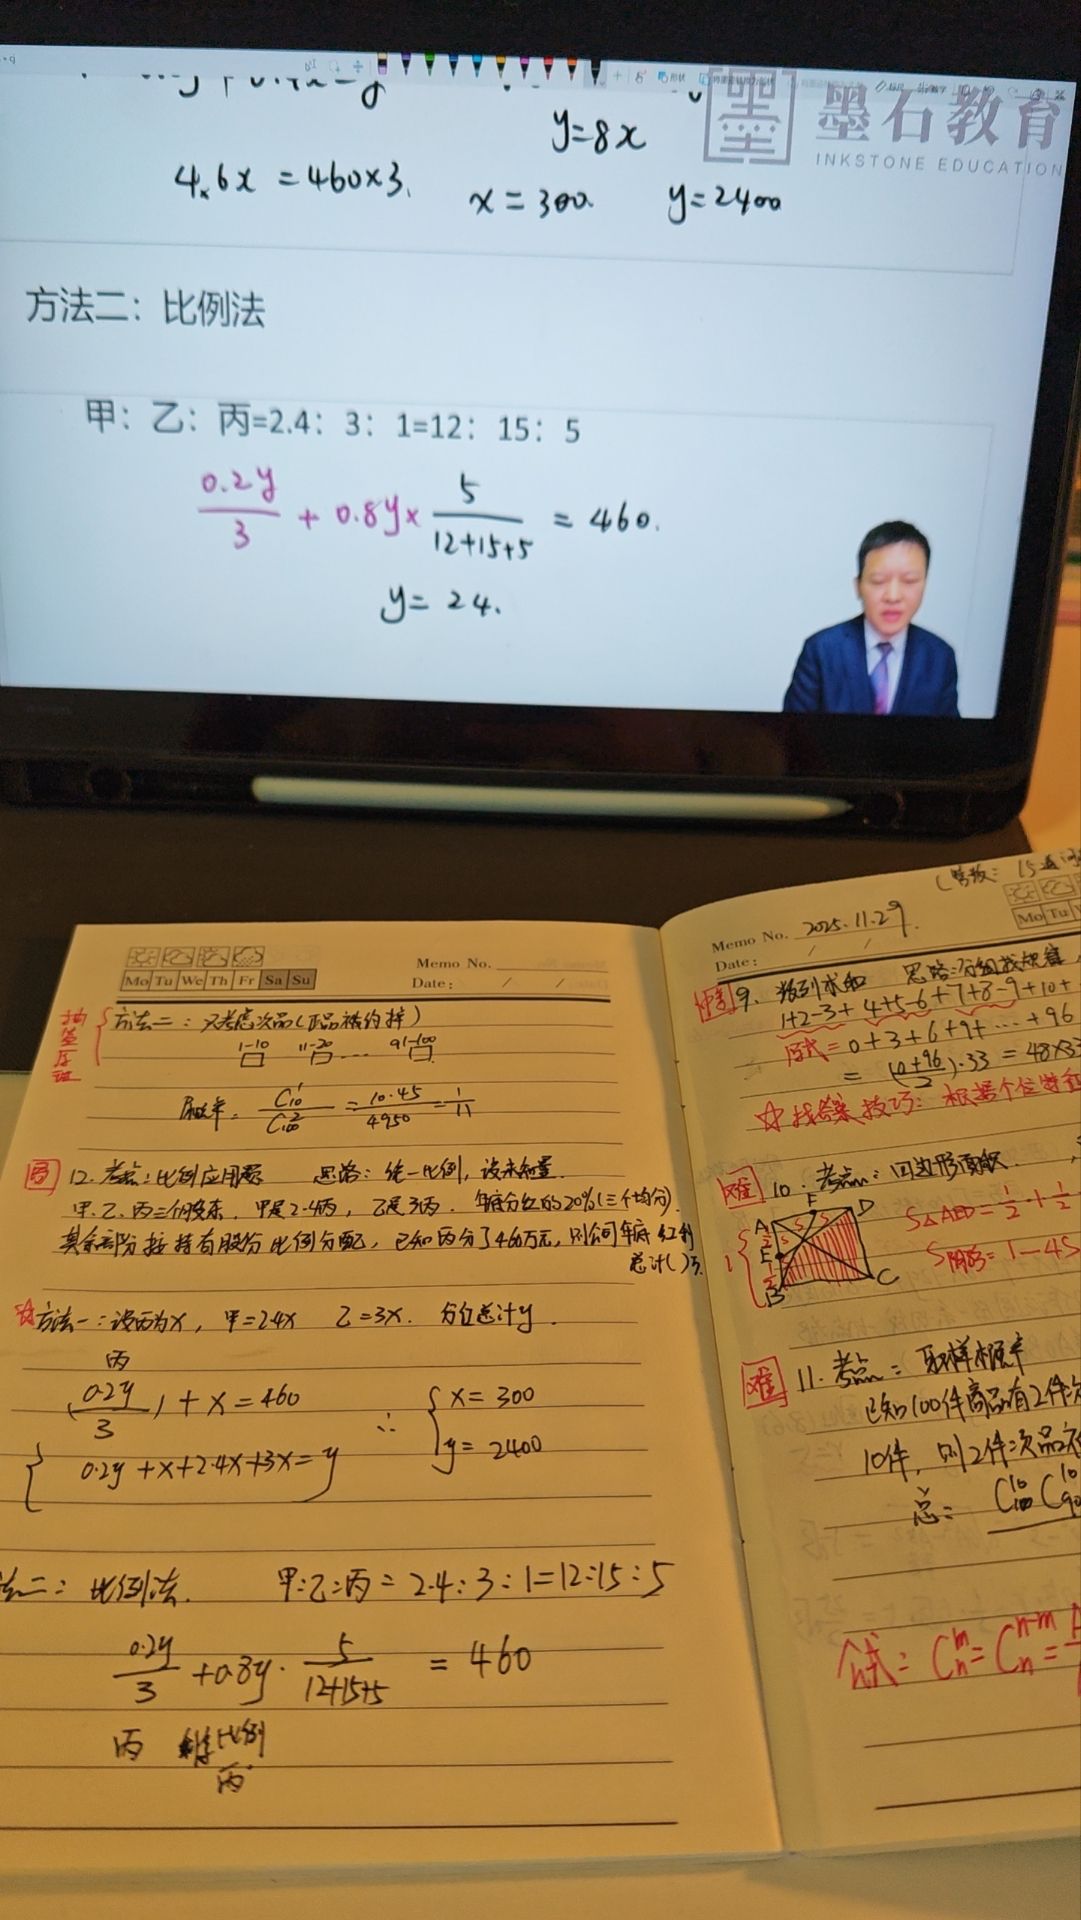 y=8x
墨石教育
INKSTONE EDUCATION
4.6x = 460×3.
x = 300.
y=2400
方法二：比例法
甲：乙：丙=2.4：3：1=12：15：5
0.2y/3 + 0.8y× 5/(12+15+5) = 460.
y= 24.
Memo No.
Mo Tu We Th Fr Sa Su
Date: / /
方法二：只考虑次品(正品被约掉)
1-10 11-20 … 91-100
C₁₀¹/C₁₀₀² = 10·45/4950 = 1/11
12. 考点：比例应用题 思路：统一比例，设未知量.
甲、乙、丙三个股东，甲是2.4丙，乙是3丙. 年底分红的20%(三个均分).
其余部分按持有股份比例分配，已知丙分了460万元，则公司年底红利
总计( )万.
☆方法一：设丙为x，甲=2.4x 乙=3x. 分红总计y.
丙
(0.2y/3) + x = 460
0.2y + x + 2.4x + 3x = y
∴ { x = 300
y = 2400
法二：比例法. 甲:乙:丙 = 2.4:3:1=12:15:5
0.2y/3 + 0.8y · 5/(12+15+5) = 460
丙 比例
丙
Memo No. 2025.11.29
Date: / /
Mo Tu
9. 数列求和 思路：分组找规律
1+2-3+4+5-6+7+8-9+10+
原式= 0+3+6+9+…+96
= (0+96/2)·33 = 48×33
☆找答案技巧：根据个位特征
难 10. 考点：四边形面积.
A F D
E
B C
S△AED = 1/2 · 1 · 1/2
S阴影 = 1-4S
难 11. 考点：取样概率
已知100件商品有2件次
10件，则2件次品在
总= C₁₀₀¹⁰ C₉₀¹⁰
公式：Cₙᵐ = Cₙⁿ⁻ᵐ =